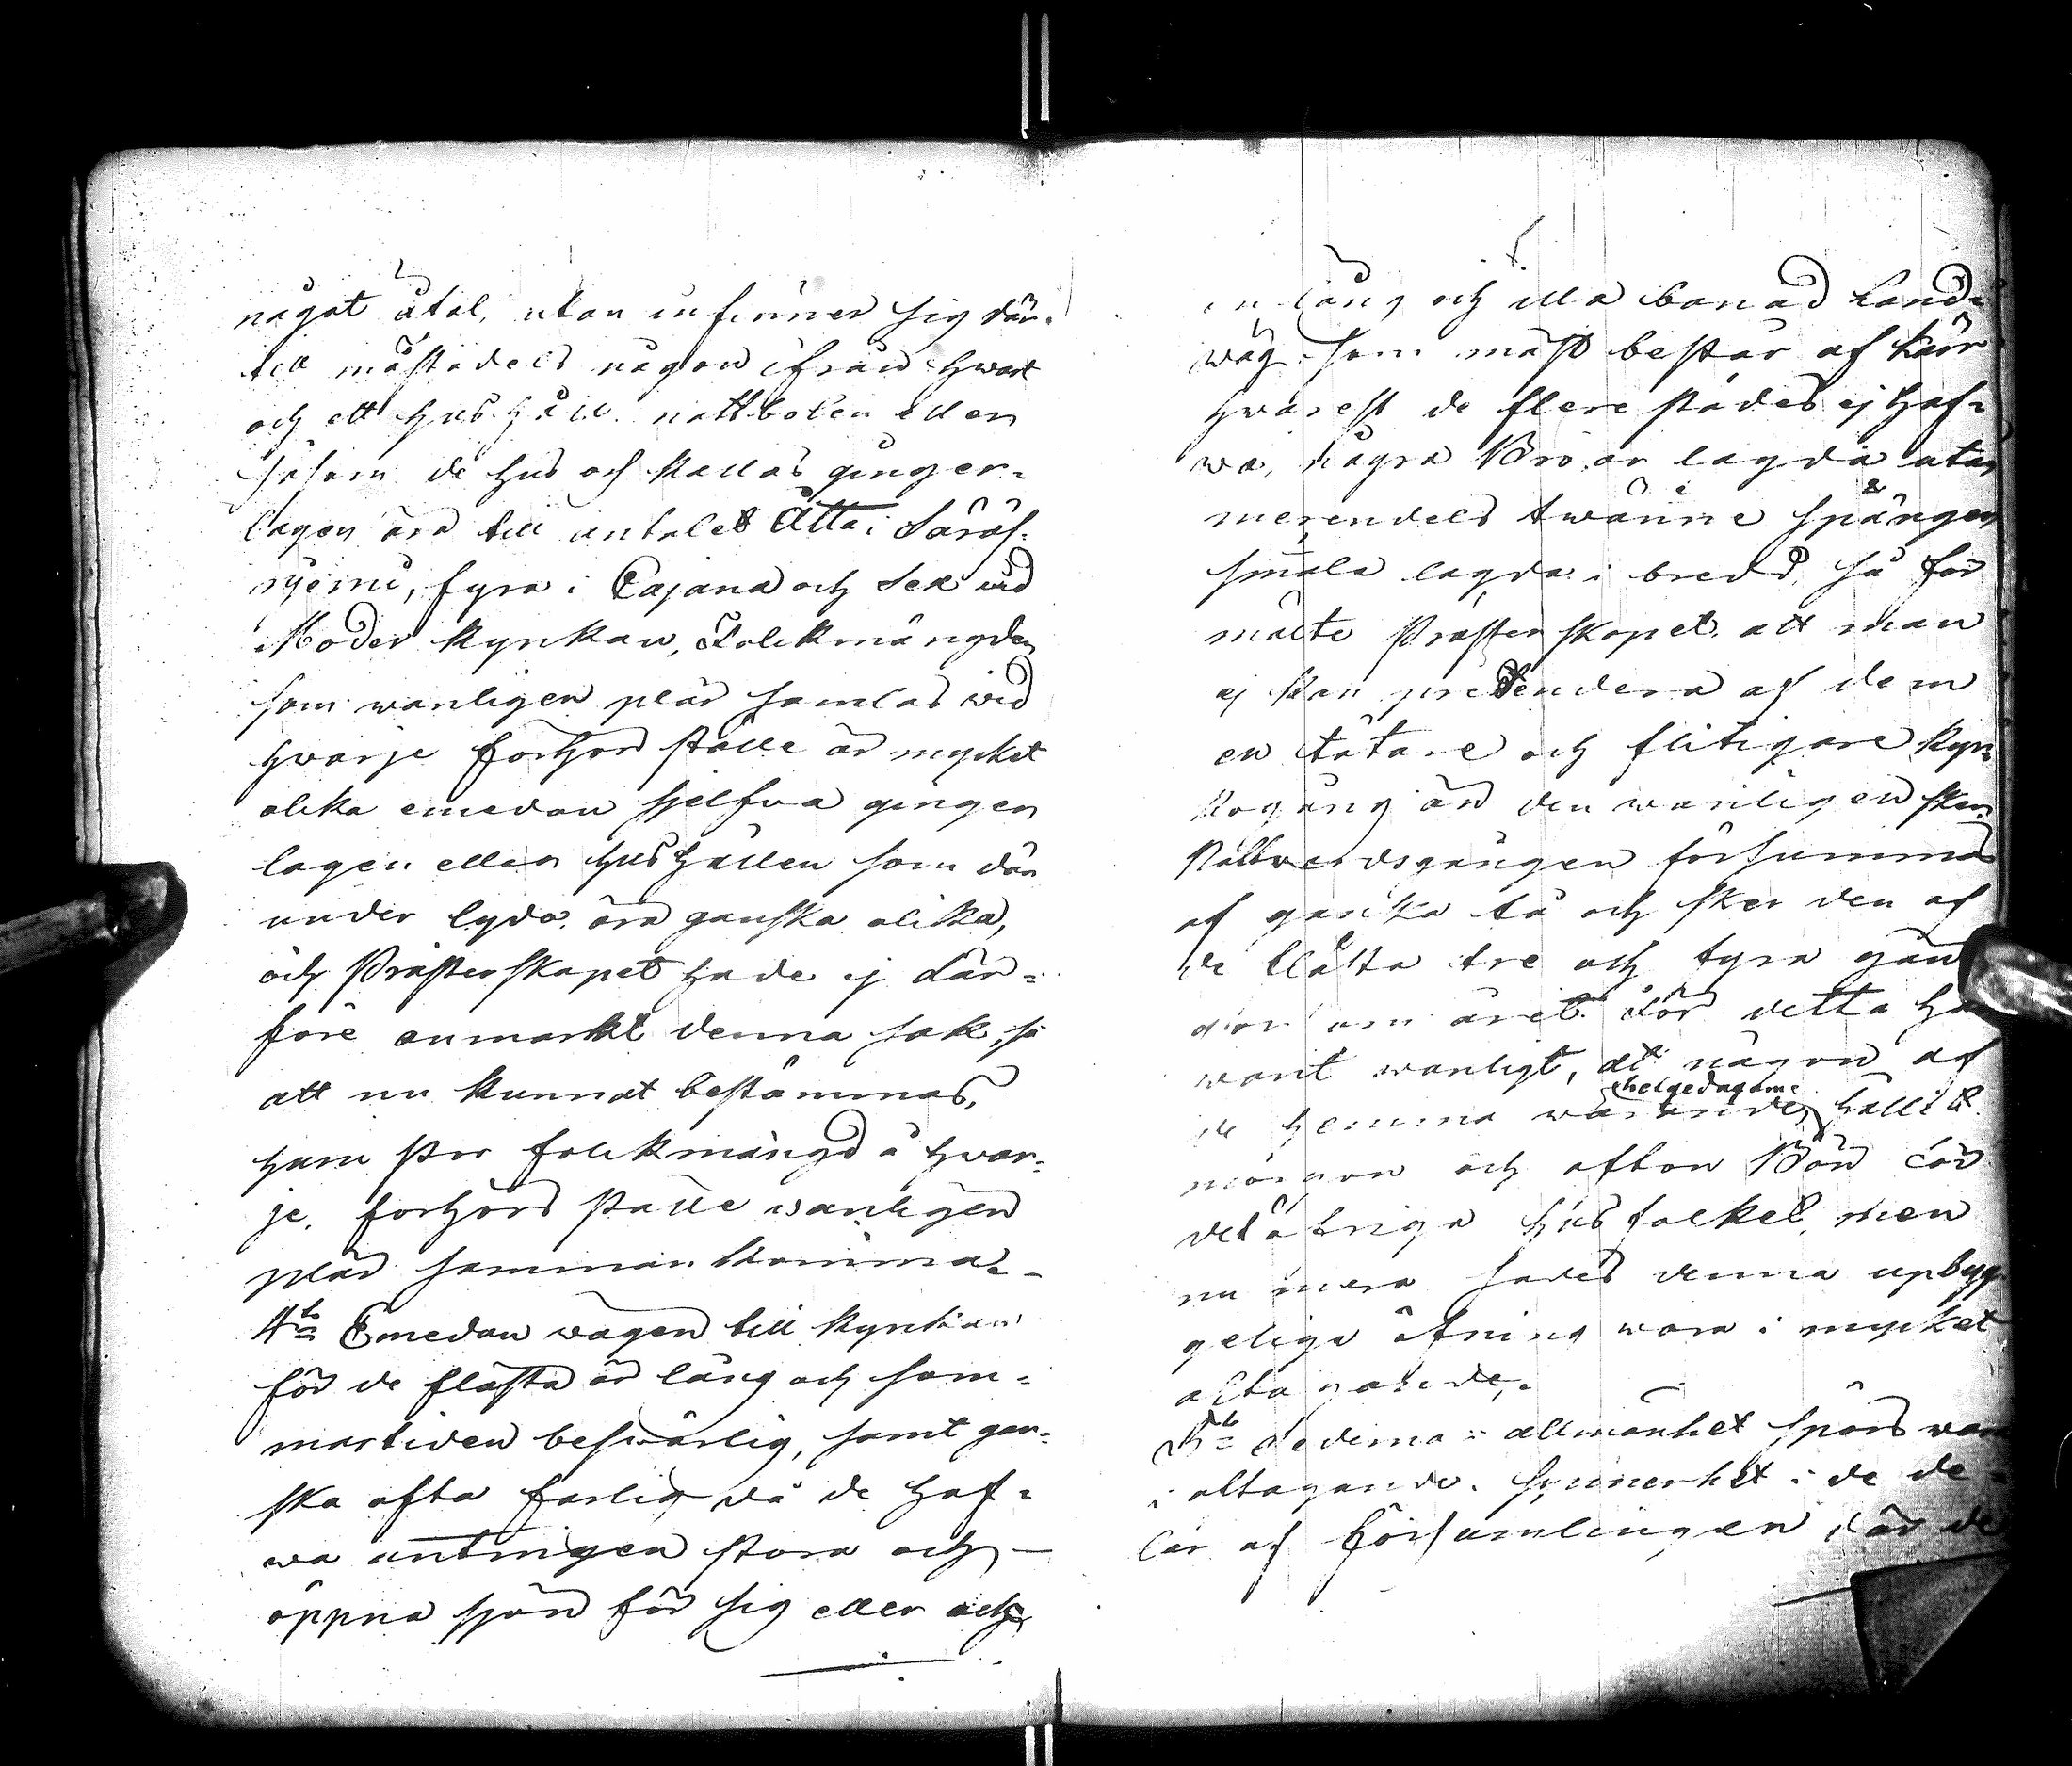 något åtal, utan infinner sig där-
till mästadels någon ifrån hwart
och ett hushåll. nattbolen eller
såsom de hus och kallas ginger-
lagen äro till antalet Åtta i Säräs-
njemi, fyra i Cajana och Sex wid
Moder Kyrkan, Folckmängden
som wanligen plär samlas wid
hwarje förhörs ställe är mycket
olika emedan sjelfwa gingen
lagen eller hushållen som där
under lyda äro ganska olika,
och Prästerskapet hade ej där-
före anmärkt denna sak, så
att nu kunnat bestämmas,
huru stor folckmängd å hwar-
je förhörs ställe wanligen
plär sammankomma.-
4to Emedan wägen till Kyrkan
för de flästa är lång och som-
martiden beswärlig, samt gan-
ska ofta farlig då de haf-
wa antingen stora och -
öppna sjöar för sig eller och
en lång och illa banad Land-
wäg som mäst består af Kärr
hwarest de flere städes ej haf-
wa några Broar lagda utan
merendels twänne spänger
smala lagda i bredd, så för
mälte Prästerskapet att man
ej kan prætendera af dem
en tätare och flitigare Kyr-
kogång än den wanligen sker.
Nattwardsgången försummas
af ganska få och sker den af
de flästa tre och fyra gån
gor om året. För detta har
warit wanligt, at någon af
de hemma warande helgedagarne hållit
morgon och afton Bön för
det öfriga husfolcket, men
nu mera sades denna upbyg-
geliga öfning wara i mycket
aftagande.
5to Sederna i allmänhet spörs wara
i aftagande. Synnerhet i de de-
lar af Församlingen där de